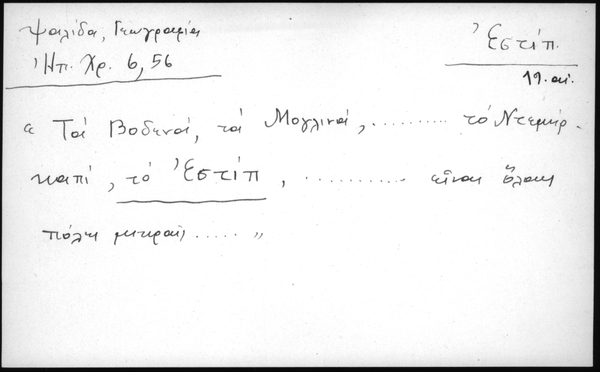 Ψαλίδα, Γεωγραφία
Ἠπ. Χρ. 6, 56
Ἐστίπ.
19. αἰ.
« Τά Βοδενά, τά Μογλινά, .......... τό Ντεμίρ-
καπί, τό Ἐστίπ, .......... εἶναι ὅλαι
πόλεις μικραί ..... »